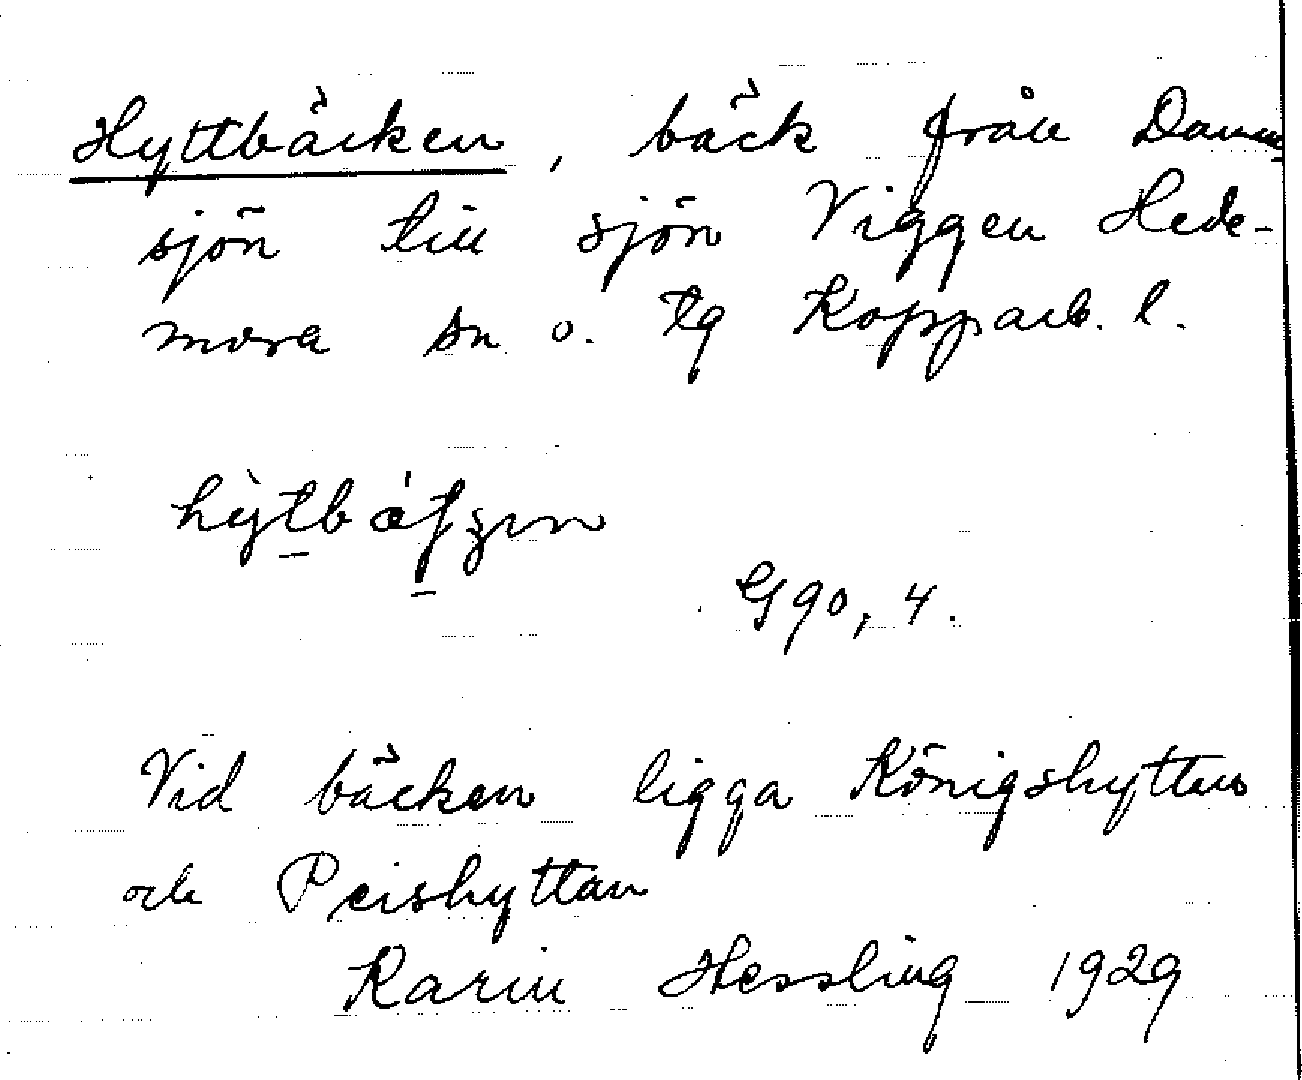 Hyttbäcken, bäck från Damm
sjön till sjön Viggen Hede-
mora sn o. tg Kopparb. l.
G 90, 4.
Vid bäcken ligga Königshyttan
och Peishyttan
Karin Hessling 1929